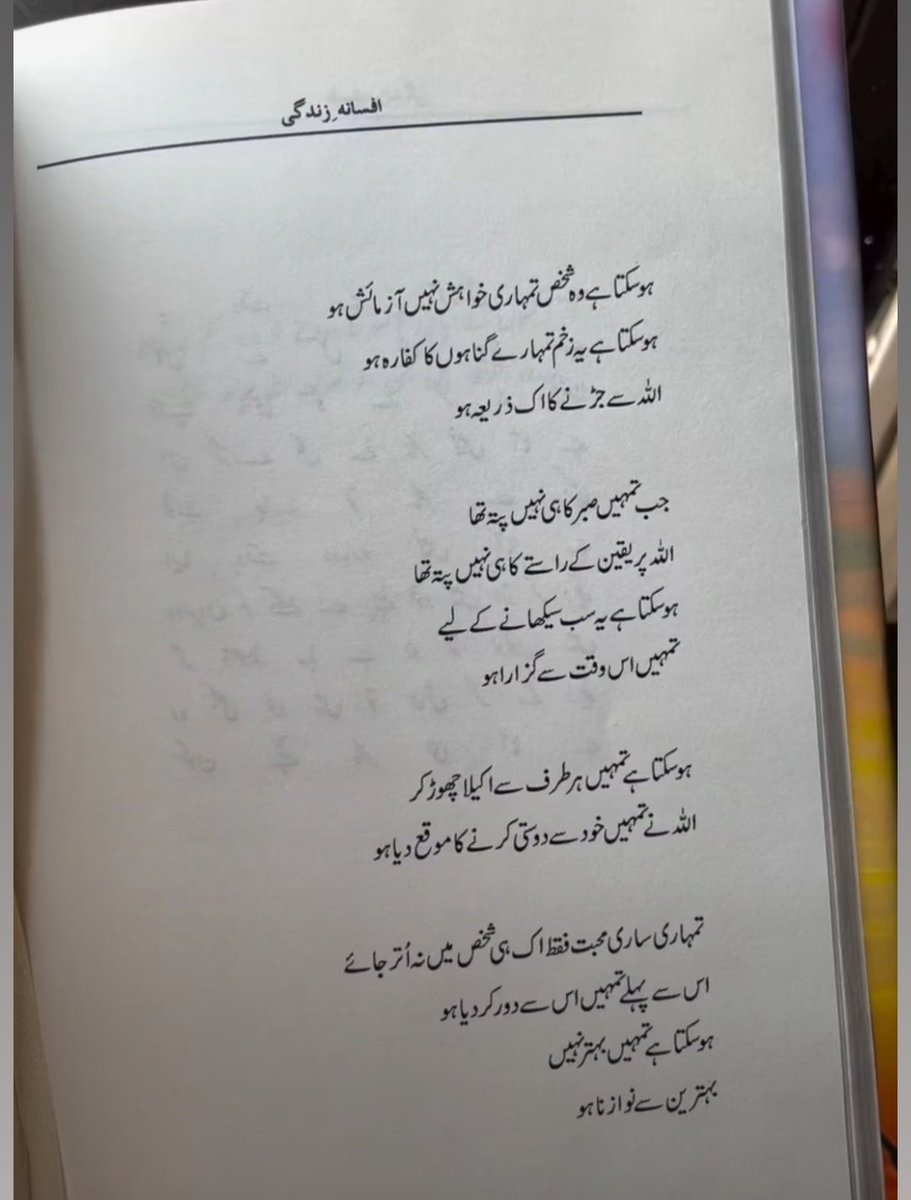 افسانہِ زندگی
ہو سکتا ہے وہ شخص تمہاری خواہش نہیں آزمائش ہو
ہو سکتا ہے یہ زخم تمہارے گناہوں کا کفارہ ہو
اللہ سے جڑنے کا اک ذریعہ ہو
جب تمہیں صبر کا ہی نہیں پتہ تھا
اللہ پر یقین کے راستے کا ہی نہیں پتہ تھا
ہو سکتا ہے یہ سب سیکھانے کے لیے
تمہیں اس وقت سے گزارا ہو
ہو سکتا ہے تمہیں ہر طرف سے اکیلا چھوڑ کر
اللہ نے تمہیں خود سے دوستی کرنے کا موقع دیا ہو
تمہاری ساری محبت فقط اک ہی شخص میں نہ اُتر جائے
اس سے پہلے تمہیں اس سے دور کر دیا ہو
ہو سکتا ہے تمہیں بہتر نہیں
بہترین سے نوازنا ہو